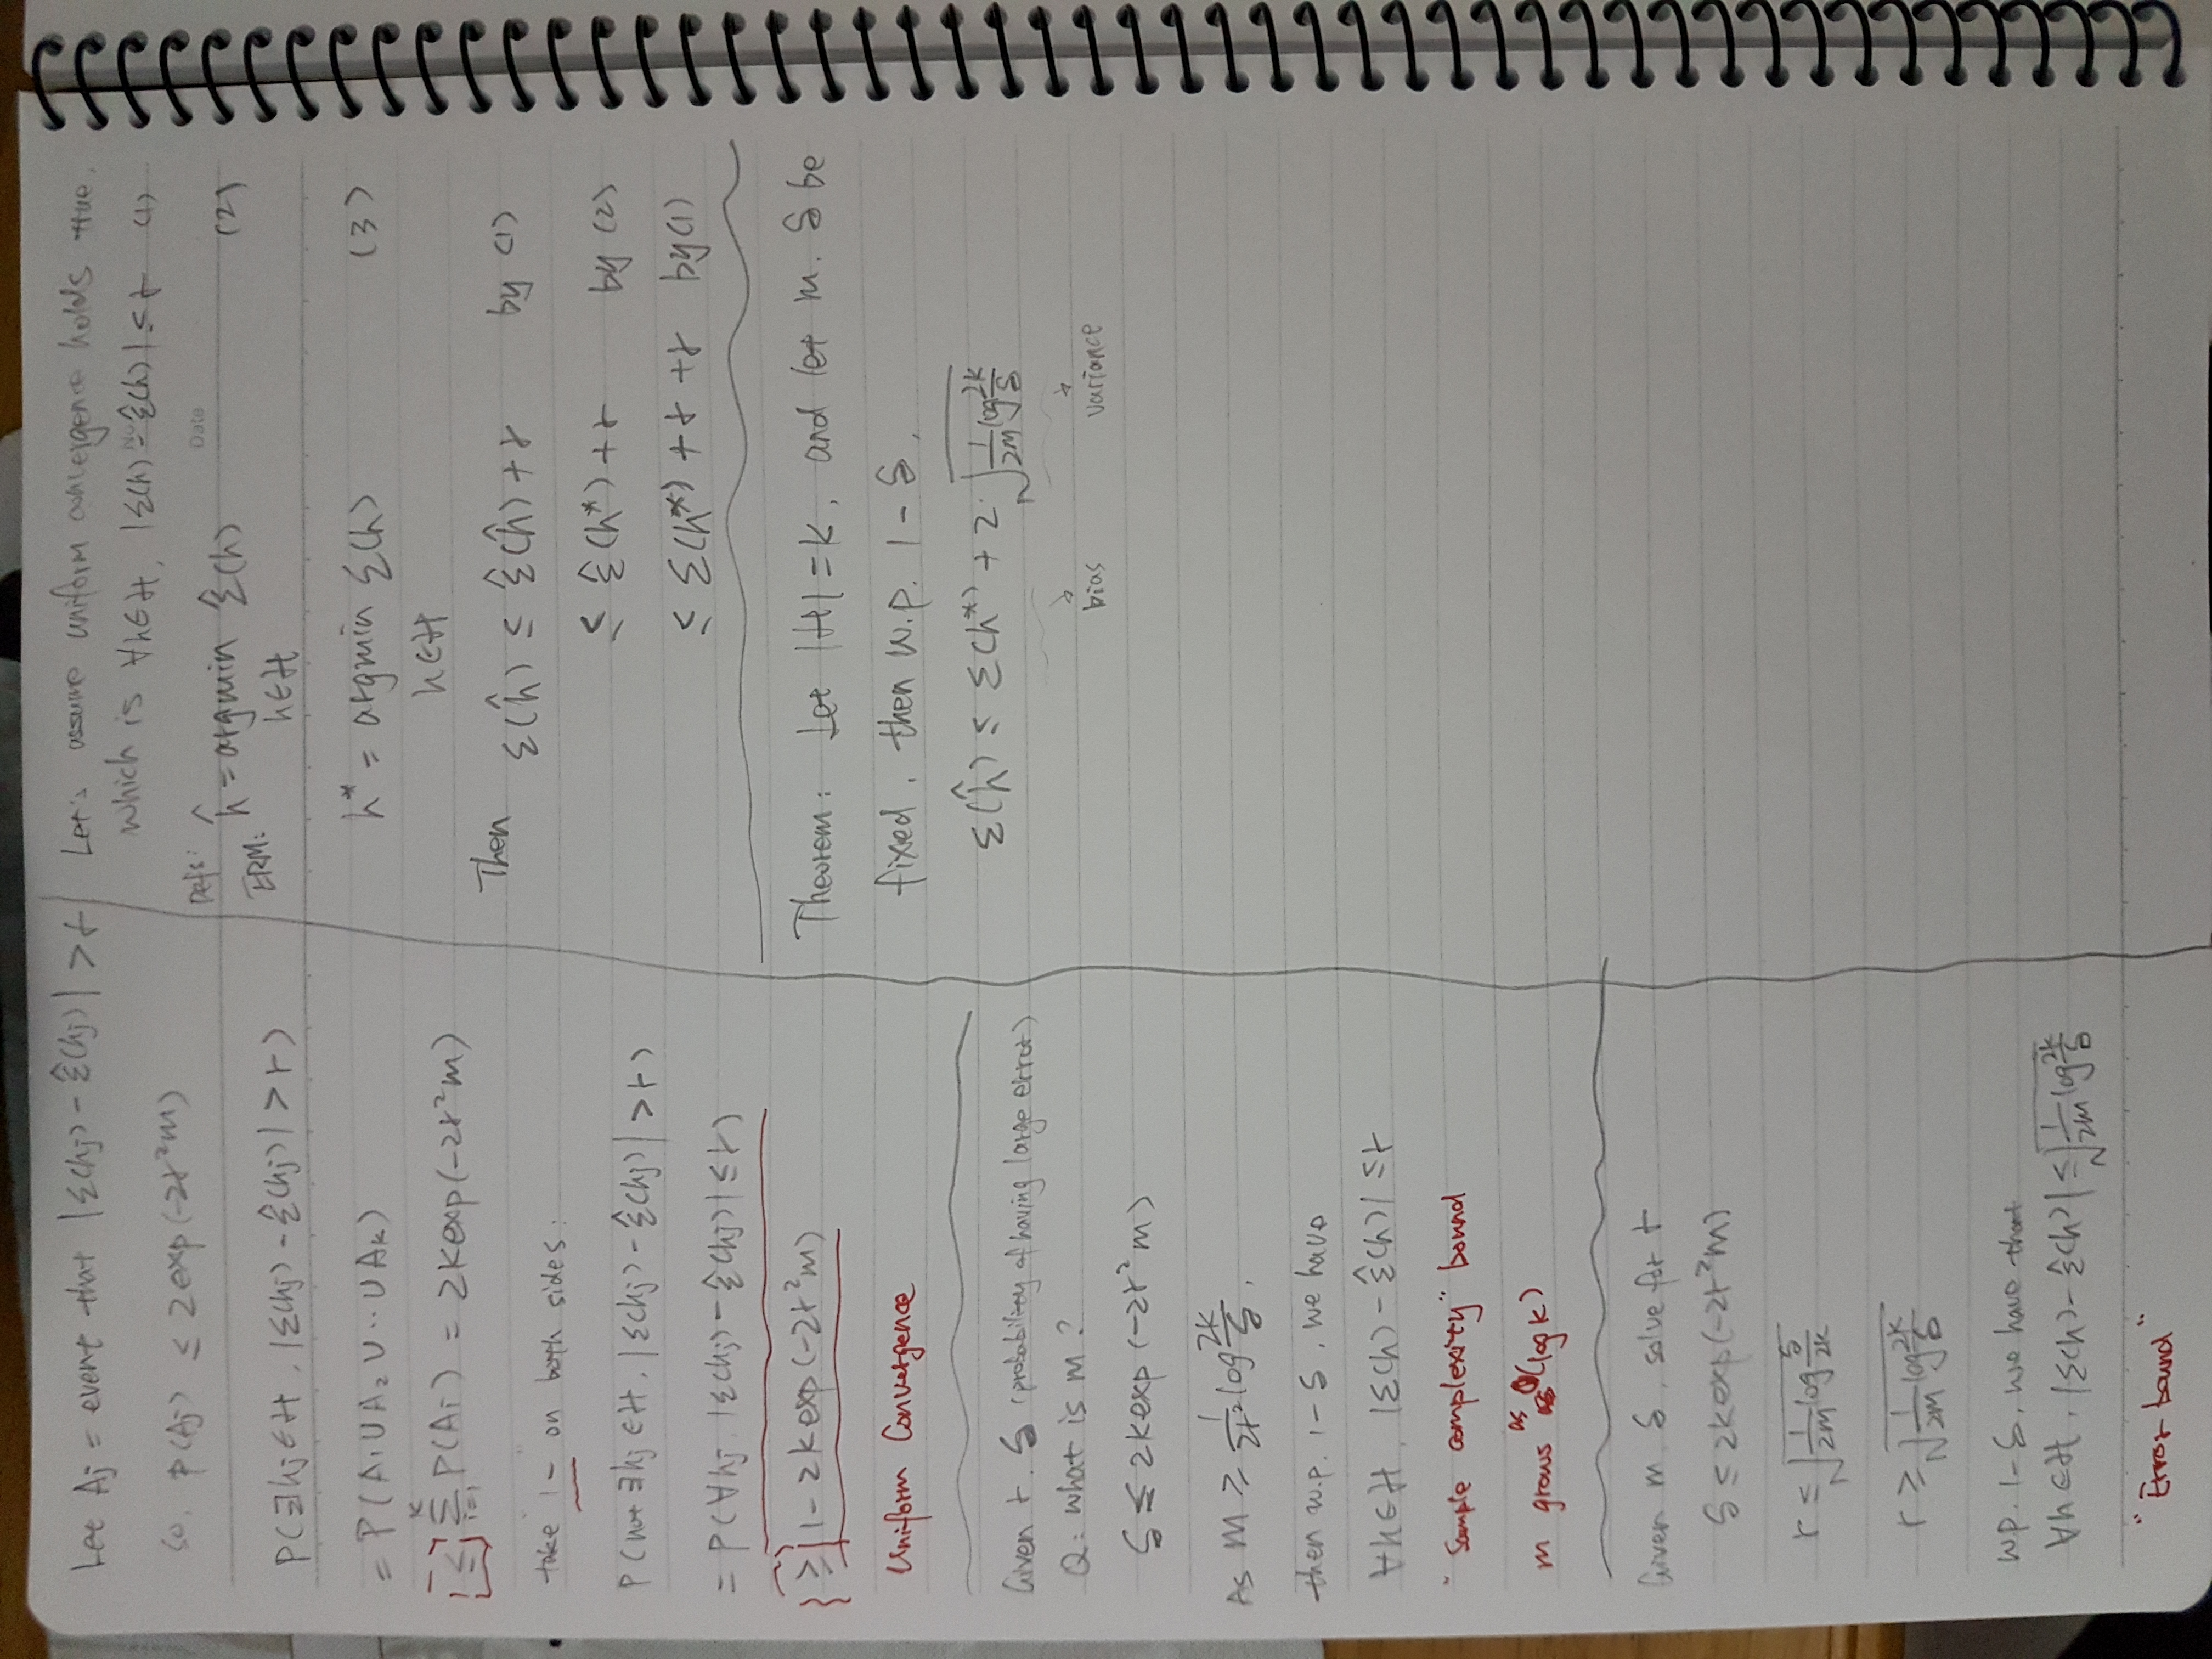 Let Aj = event that |ε(hj) - ε̂(hj)| > r
so, P(Aj) ≤ 2exp(-2r²m)
P(∃hj ∈ H, |ε(hj) - ε̂(hj)| > r)
= P(A₁ ∪ A₂ ∪ ·· ∪ Ak)
≤ Σᵢ₌₁ᵏ P(Ai) = 2k exp(-2r²m)
take 1- on both sides:
P(not ∃hj ∈ H, |ε(hj) - ε̂(hj)| > r)
= P(∀hj, |ε(hj) - ε̂(hj)| ≤ r)
≥ 1 - 2k exp(-2r²m)
Uniform Convergence
Given r, δ (probability of having large error)
Q: what is m?
δ ≤ 2k exp(-2r²m)
As m ≥ 1/2r² log 2k/δ,
then w.p. 1-δ, we have
∀h ∈ H, |ε(h) - ε̂(h)| ≤ r
"Sample complexity" bound
m grows as O(log k)
Given m, δ, solve for r
δ ≤ 2k exp(-2r²m)
r ≤ √(1/2m log δ/2k)
r ≥ √(1/2m log 2k/δ)
w.p. 1-δ, we have that
∀h ∈ H, |ε(h) - ε̂(h)| ≤ √(1/2m log 2k/δ)
"Error bound"
Let's assume uniform convergence holds true,
which is ∀h ∈ H, |ε(h) - ε̂(h)| ≤ r (1)
No.
Date
Defs:
ERM: ĥ = argmin ε̂(h) (2)
h ∈ H
h* = argmin ε(h) (3)
h ∈ H
Then ε(ĥ) ≤ ε̂(ĥ) + r by (1)
≤ ε̂(h*) + r by (2)
≤ ε(h*) + r + r by (1)
Theorem: Let |H| = k, and let m, δ be
fixed, then w.p. 1 - δ,
ε(ĥ) ≤ ε(h*) + 2·√(1/2m log 2k/δ)
bias variance